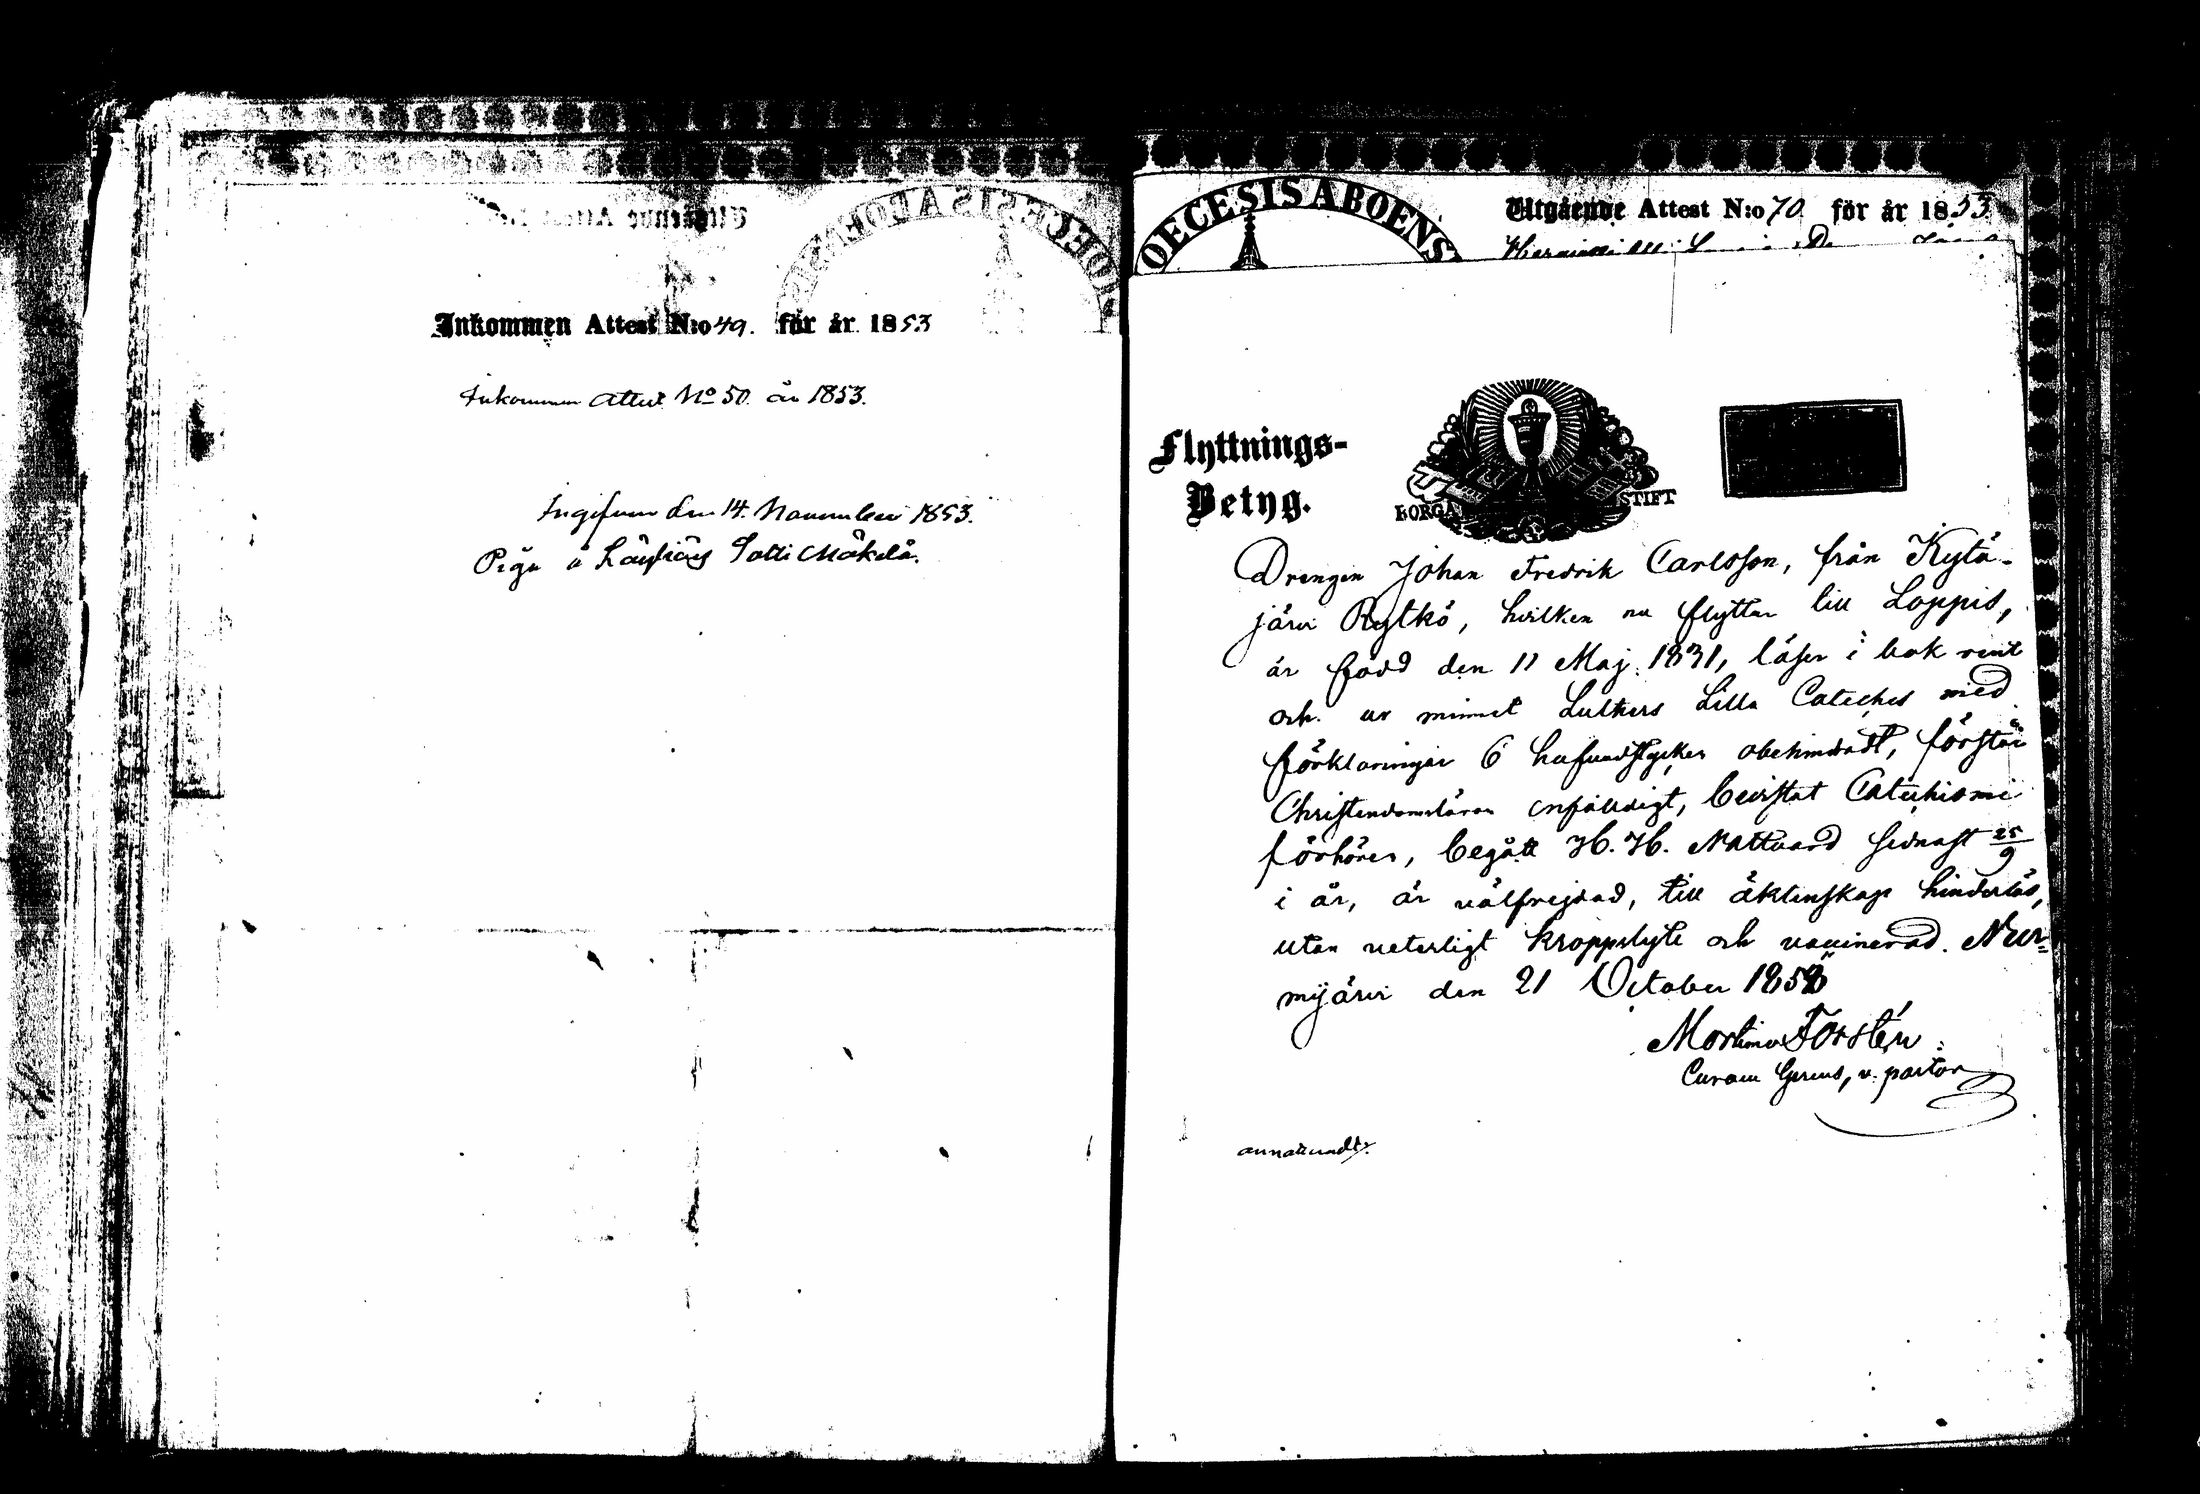 Inkommen Attest N:o 49. för år 1853
Inkommen Attest No 50. år 1853.
Ingifven den 14. November 1853.
Piga å Läyliäis Potti Mäkelä.
OECESIS ABOENS
Utgående Attest N:o 70 för år 1853
Flyttnings-
Betyg.
BORGÅ STIFT
Drengen Johan Fredrik Carlsson, från Kytä-
järvi Rytkö, hvilken nu flyttar till Loppis,
är född den 11 Maj 1831, läser i bok rent
och ur minnet Luthers Lilla Cateches med
förklaringar 6 hufvudstycken obehindradt, förstår
Christendomsläran enfaldigt, bevistat Catechismi
förhören, begått H. H. Nattvard sednast 25/9
i år, är välfrejdad, till äktenskap hinderlös,
utan veterligt kroppslyte och vaccinerad. Nur-
mijärvi den 21 October 1853
Mortimer Forstén
Curam Gerens, v. pastor